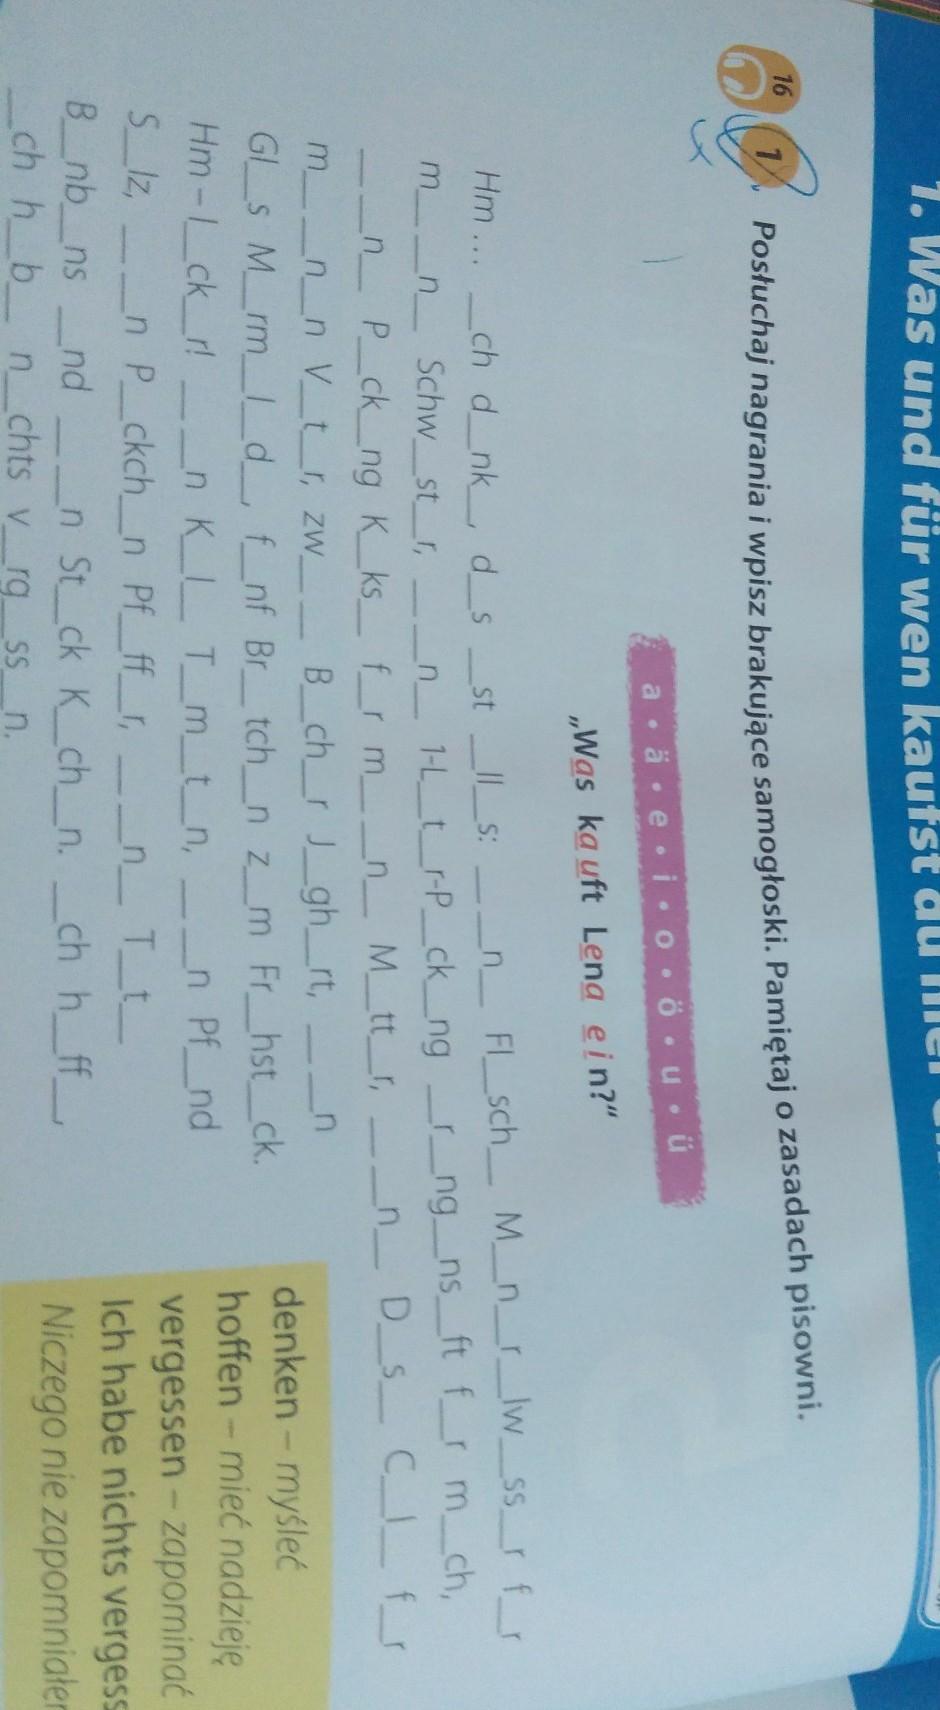 1. Was und für wen kaufst du hier
16
1. Posłuchaj nagrania i wpisz brakujące samogłoski. Pamiętaj o zasadach pisowni.
a • ä • e • i • o • ö • u • ü
„Was kauft Lena ein?“
Hm ... __ch d__nk__, d__s __st __ll__s: __ __n__ Fl__sch__ M__n__r__lw__ss__r f__r
m__ __n__ Schw__st__r, __ __n__ 1-L__t__r-P__ck__ng __r__ng__ns__ft f__r m__ch,
__ __n__ P__ck__ng K__ks__ f__r m__ __n__ M__tt__r, __ __n__ D__s__ C__l__ f__r
m__ __n__n V__t__r, zw__ __ B__ch__r J__gh__rt, __ __n
Gl__s M__rm__l__d__, f__nf Br__tch__n z__m Fr__hst__ck.
Hm – l__ck__r! __ __n K__l__ T__m__t__n, __ __n Pf__nd
S__lz, __ __n P__ckch__n Pf__ff__r, __ __n__ T__t__
B__nb__ns __nd __ __n St__ck K__ch__n. __ch h__ff__,
__ch h__b__ n__chts v__rg__ss__n.
denken – myśleć
hoffen – mieć nadzieję
vergessen – zapominać
Ich habe nichts vergess
Niczego nie zapomniałem